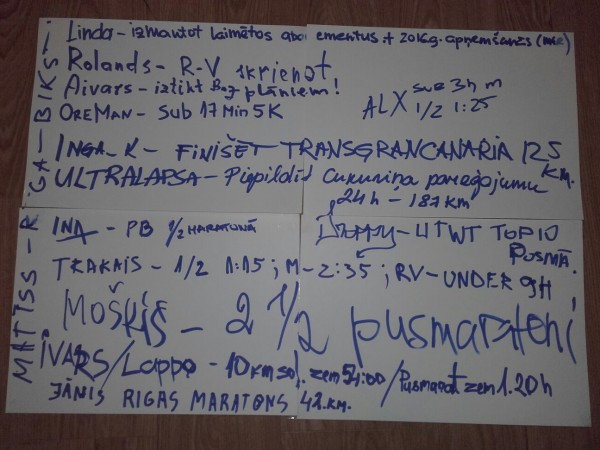 Linda - izmantot laimētos abonementus + 2016.g. apņemšanās
Rolands - R-V skrienot
Aivars - iztikt bez plāniem!
OREMAN - SUB 17 MIN 5K
ALX SUB 3h m
1/2 1:25
INGA_K - FINIŠĒT TRANSGRANCANARIA 125 KM.
ULTRALAPSA - Piepildīt Cukuriņa pareģojumu
24h - 187 KM
INA - PB 1/2 MARATONĀ
UTWT TOP10 PUSMĀ.
TRAKAIS - 1/2 1:15; M - 2:35; RV - UNDER 9H
MOŠĶIS - 2 1/2 pusmaratoni
ĪVARS/Lappo - 10km sol. zem 54:00 / Pusmarat zem 1.20h
JĀNIS RIGAS MARATONS 42.KM.
MATĪSS - RĪGA - BIKSTI